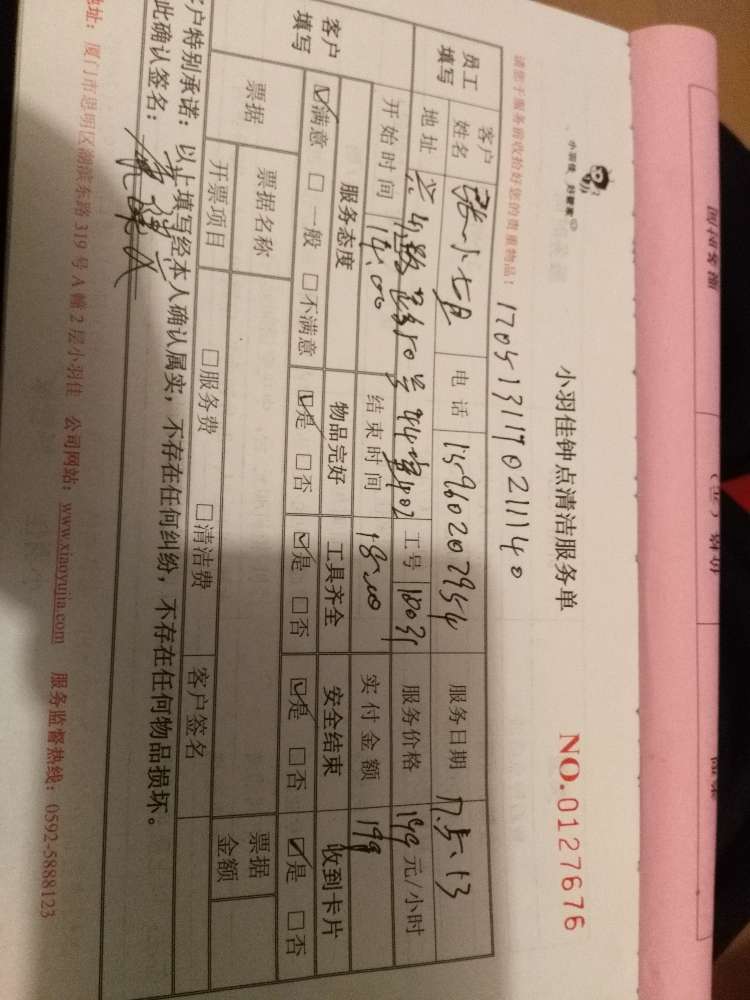 小羽佳钟点清洁服务单
NO.0127676
请您于服务前收拾好您的贵重物品: 170513117021140
员工填写 客户姓名 张小七 电话 15960202954 服务日期 17.5.13
地址 工号 服务价格 199 元/小时
开始时间 14:00 结束时间 18:00 实付金额 199
客户填写 服务态度 物品完好 工具齐全 安全结束 收到卡片
☑满意 □一般 □不满意 ☑是 □否 ☑是 □否 ☑是 □否 ☑是 □否
票据 票据名称 票据金额
开票项目 □服务费 □清洁费 客户签名
客户特别承诺: 以上填写经本人确认属实, 不存在任何纠纷, 不存在任何物品损坏。
此确认签名:
地址: 厦门市思明区湖滨东路319号A幢2层小羽佳 公司网站: www.xiaoyujia.com 服务监督热线: 0592-5888123